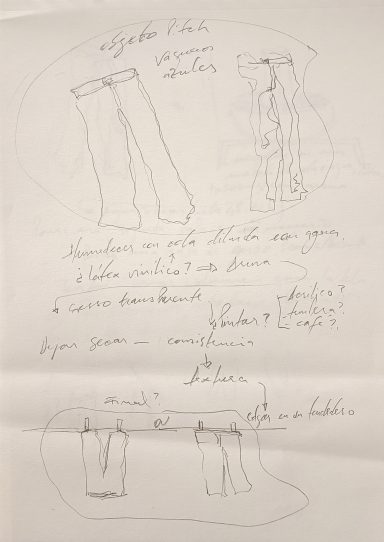 objeto Pitch
vaqueros
azules
Humedecer con cola diluida con agua.
¿látex vinílico? ⇒ Duna
gesso transparente
Pintar?
- Acrílico?
- tintura?
- café?
Dejar secar — consistencia
textura
Final?
colgar en un tendedero